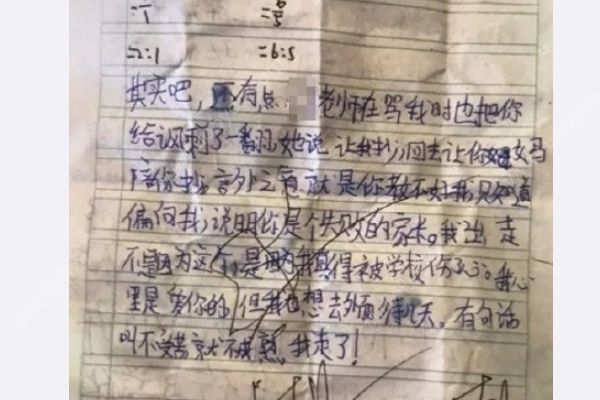 =1 =6/5
=2:1 =6:5
其实吧，还有点 老师在骂我时也把你
给讽刺了一番，她说让我抄，回去让你 妈
陪你抄言外之意就是你教不好我只知道
偏向我，说明你是个失败的家长。我出走
不是因为这个，是因为我真得被学校伤 了。我心
里是爱你的，但我也想去 几天。有句话
叫不受苦就不成熟，我走了！